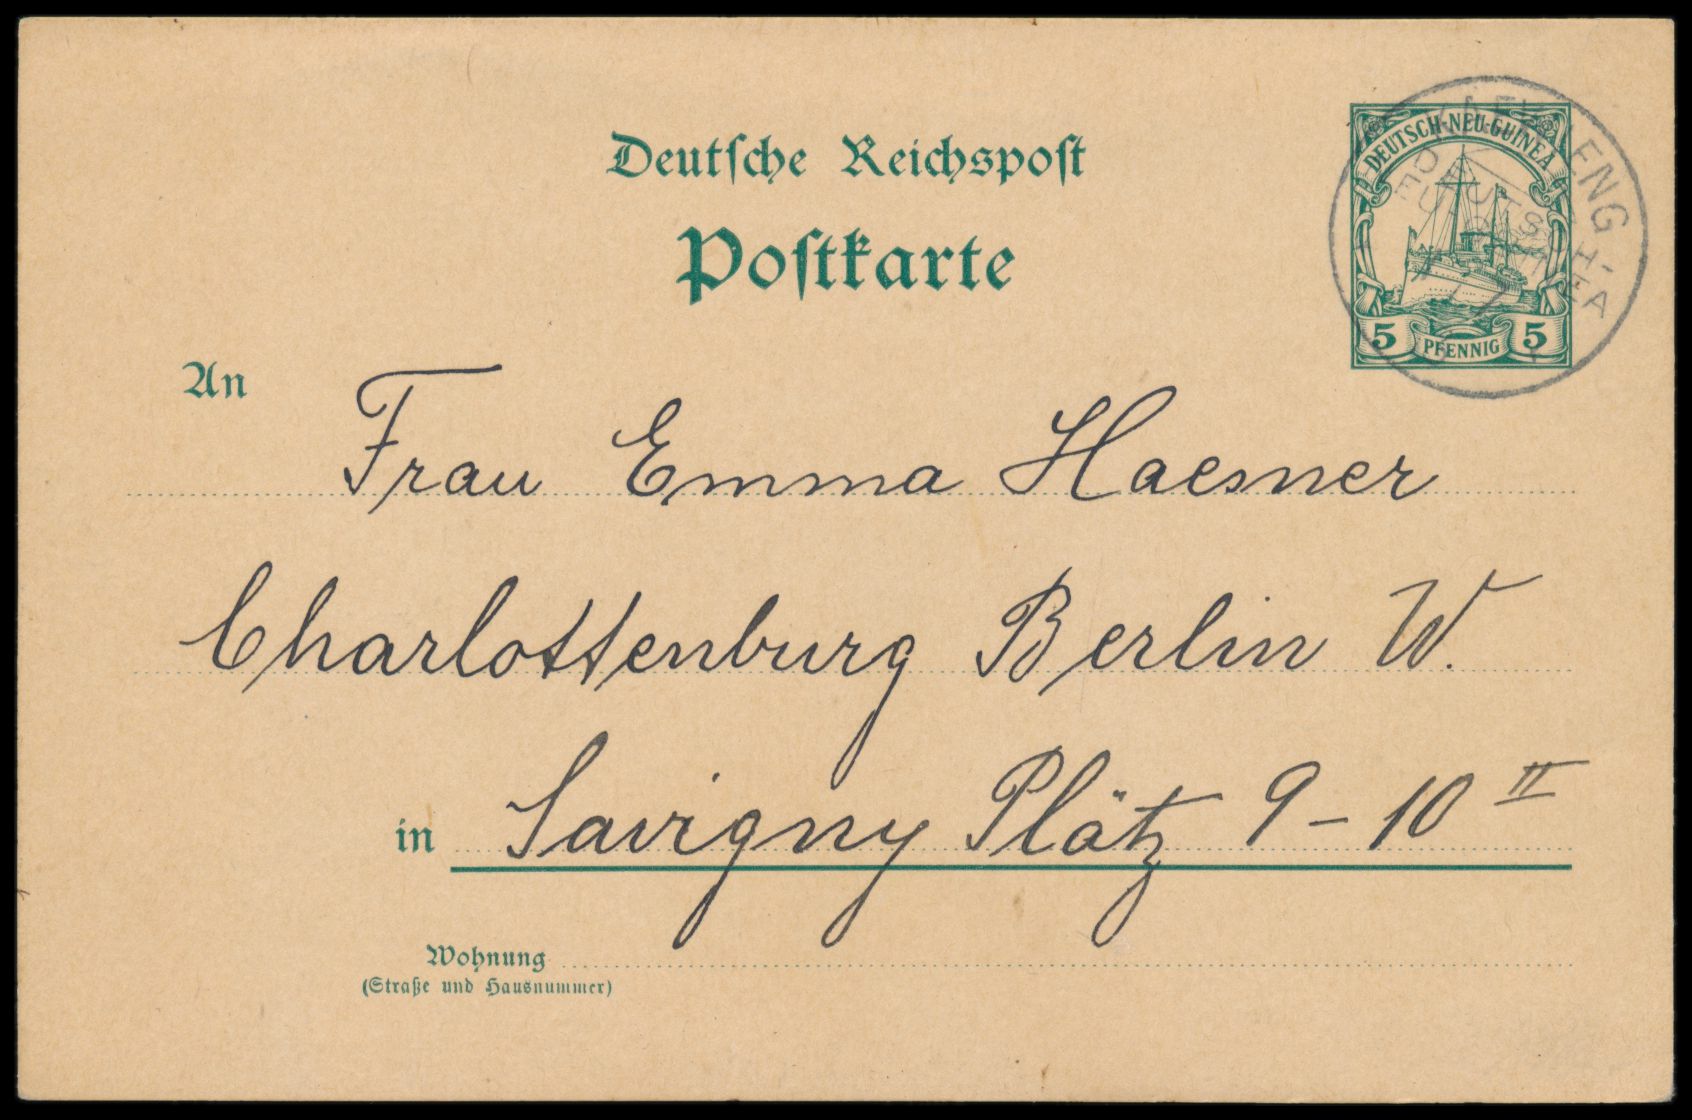 Deutsche Reichspost
Postkarte
DEUTSCH-NEU-GUINEA
5 PFENNIG 5
An Frau Emma Haesner
Charlottenburg Berlin W.
in Savigny Plätz 9-10 II
Wohnung
(Straße und Hausnummer)